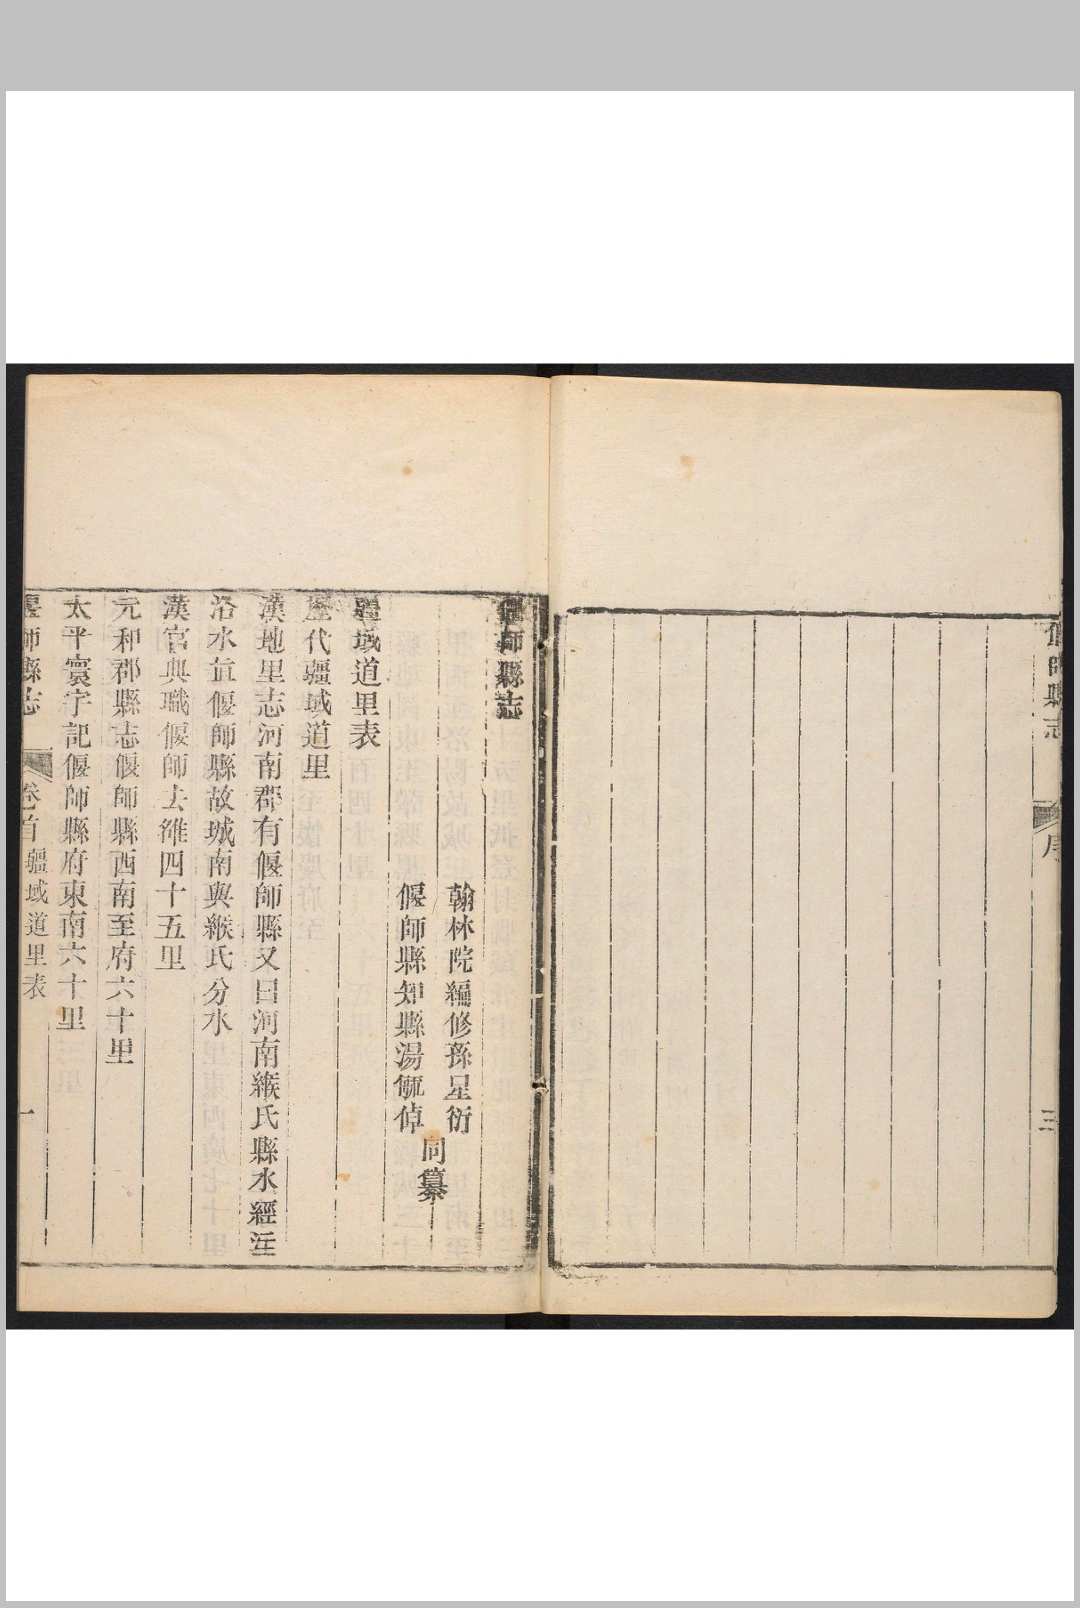 偃師縣志
序
三
偃師縣志
翰林院編修孫星衍
偃師縣知縣湯毓倬
同纂
疆域道里表
歷代疆域道里
漢地里志河南郡有偃師縣又曰河南緱氏縣水經注
洛水逕偃師縣故城南與緱氏分水
漢官典職偃師去雒四十五里
元和郡縣志偃師縣西南至府六十里
太平寰宇記偃師縣府東南六十里
偃師縣志
卷首
疆域道里表
一